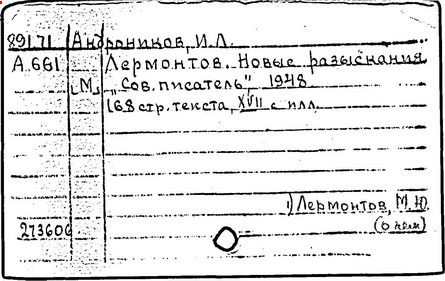 89171 Андроников, И.Л.
А.661 Лермонтов. Новые разыскания
М., „Сов. писатель", 1948
168 стр. текста, XVII с илл.
1) Лермонтов, М.Ю.
(о нем)
273606